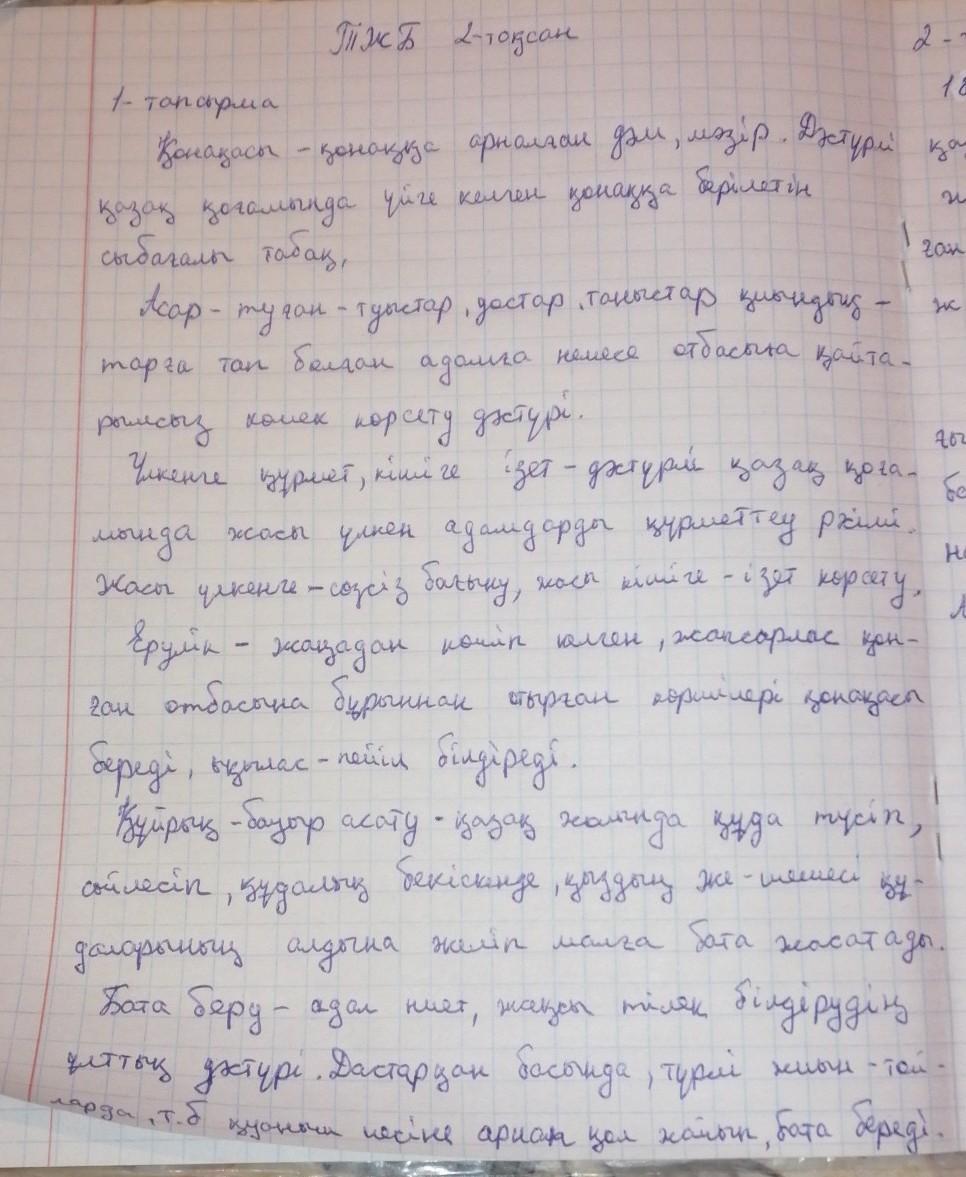 ТЖБ 2-тоқсан
1- тапсырма
Қонақасы - қонаққа арналған дәм, мәзір. Дәстүрлі
қазақ қоғамында үйге келген қонаққа берілетін
сыбағалы табақ,
Асар - туған - туыстар, достар, таныстар қиындық -
тарға тап болған адамға немесе отбасына қайта-
рымсыз көмек көрсету дәстүрі.
Үлкенге құрмет, кішіге ізет - дәстүрлі қазақ қоға-
мында жасы үлкен адамдарды құрметтеу рәсімі.
Жасы үлкенге - сөзсіз бағыну, жасы кішіге - ізет көрсету,
Ерулік - жаңадан көшіп келген, жапсарлас қон-
ған отбасына бұрыннан отырған көршілері қонақасы
береді, ықылас - пейіл білдіреді.
Құйрық - бауыр асату - қазақ халқында құда түсіп,
сөйлесіп, құдалық бекіскенде, қыздың же-шешесі құ-
даларының алдына желіп малға бата жасатады.
Бата беру - адал ниет, жақсы тілек білдірудің
ұлттық дәстүрі. Дастарқан басында, түрлі жиын - той -
ларда, т.б қуаныш иесіне арнап қол жайып, бата береді.
2 -
18
ған
ж